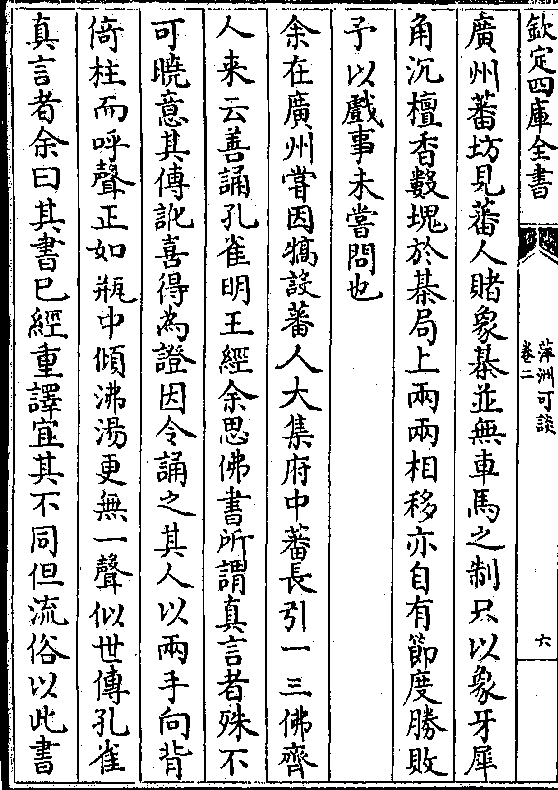 欽定四庫全書
萍洲可談
卷二
六
廣州蕃坊見蕃人賭象棊並無車馬之制只以象牙犀
角沉檀香數塊於棊局上兩兩相移亦自有節度勝敗
予以戲事未嘗問也
余在廣州嘗因犒設蕃人大集府中蕃長引一三佛齊
人来云善誦孔雀明王經余思佛書所謂真言者殊不
可曉意其傳訛喜得為證因令誦之其人以兩手向背
倚柱而呼聲正如瓶中傾沸湯更無一聲似世傳孔雀
真言者余曰其書已經重譯宜其不同但流俗以此書